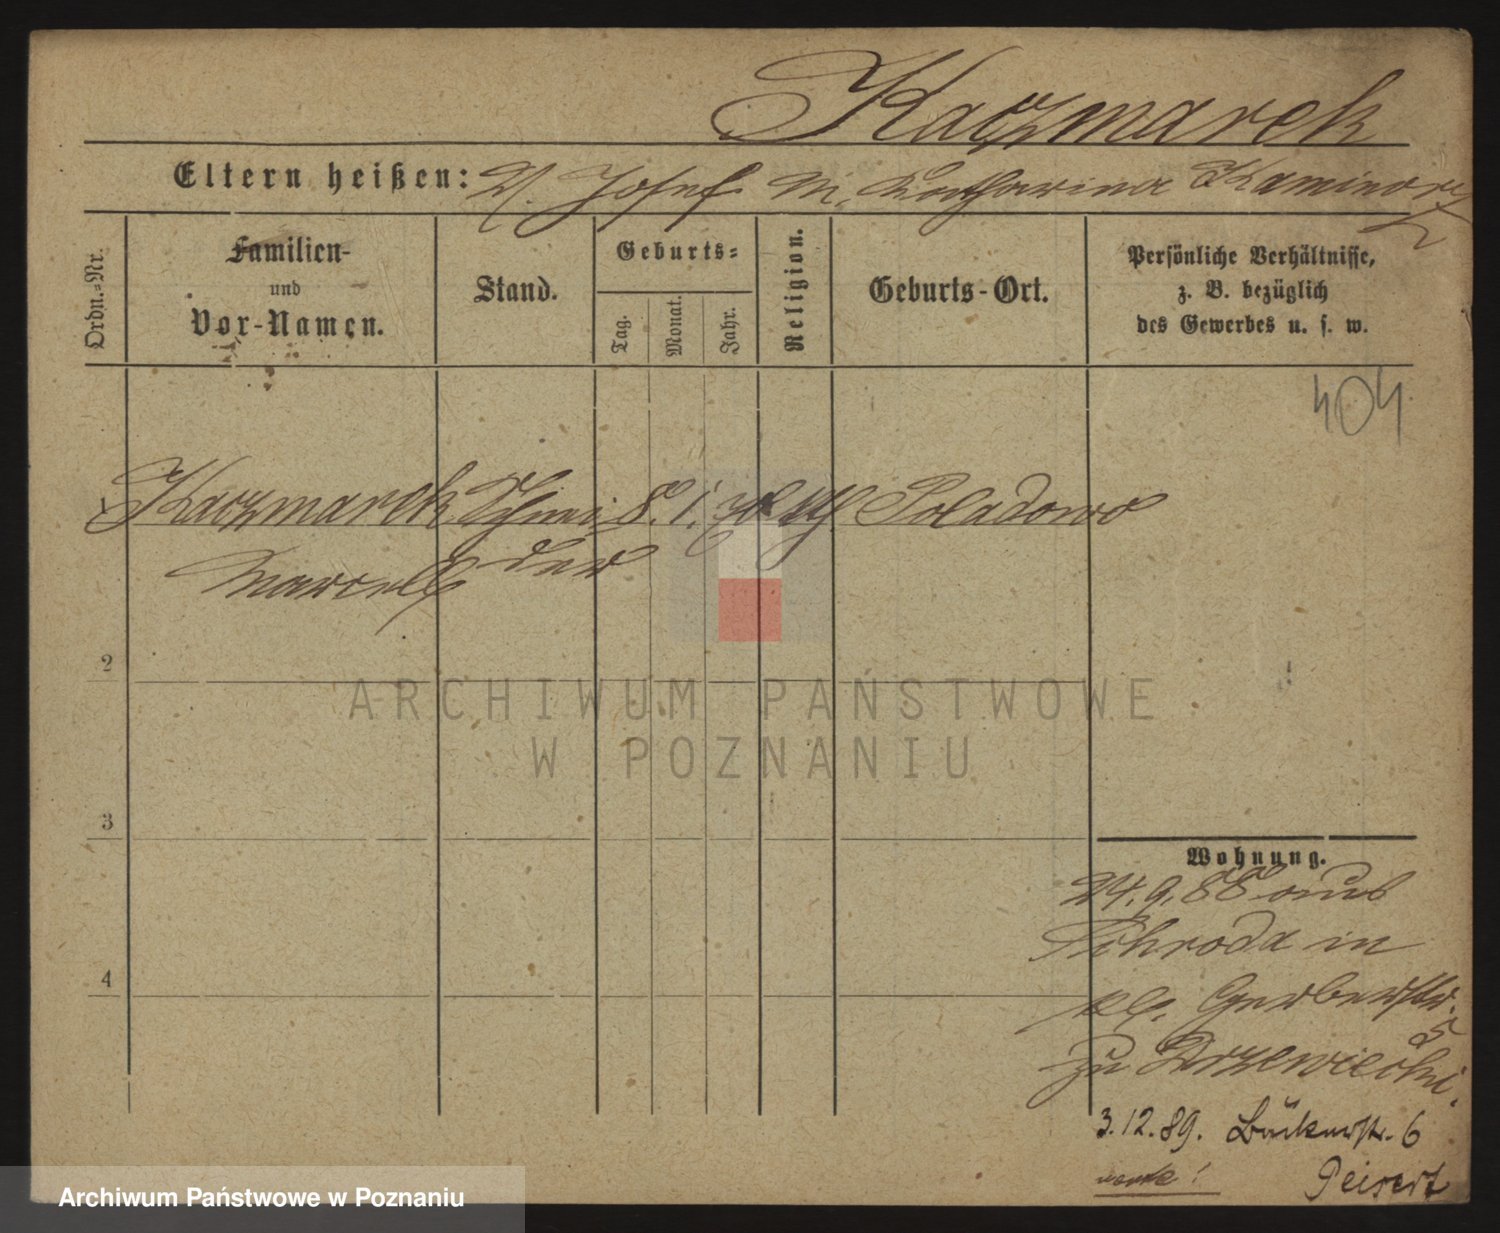 Kaczmarek
Eltern heißen: V. Josef M. Katharina
Ordn.=Nr.
Familien-
und
Vor-Namen.
Stand.
Geburts=
Tag.
Monat.
Jahr.
Religion.
Geburts-Ort.
Persönliche Verhältnisse,
z. B. bezüglich
des Gewerbes u. s. w.
404
Kaczmarek Schnei 8. 1. kth Poladowo
Marcell der
2
3
4
ARCHIWUM PAŃSTWOWE
W POZNANIU
Wohnung.
24. 9. 88 aus
Schroda in
kl. Gerberstr. 5
zu Drzewiecki.
3.12.89. Bäckerstr. 6
Peisert
Archiwum Państwowe w Poznaniu